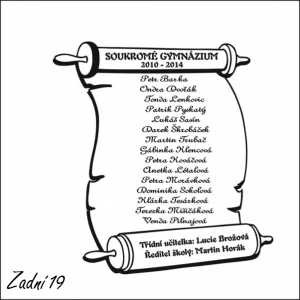 SOUKROMÉ GYMNÁZIUM
2010 - 2014
Petr Barka
Ondra Dvořák
Tonda Lenkovic
Patrik Pyskatý
Lukáš Sasín
Darek Škrobáček
Martin Trubač
Gábinka Klencová
Petra Kováčová
Anetka Létalová
Petra Morávková
Dominika Sokolová
Klárka Tesárková
Terezka Mišičáková
Venda Pilnajová
Třídní učitelka: Lucie Brožová
Ředitel školy: Martin Horák
Zadní 19